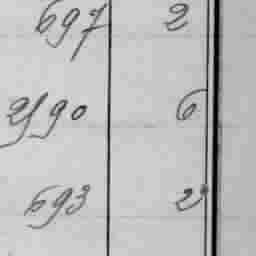 697 2
2490 6
693 2